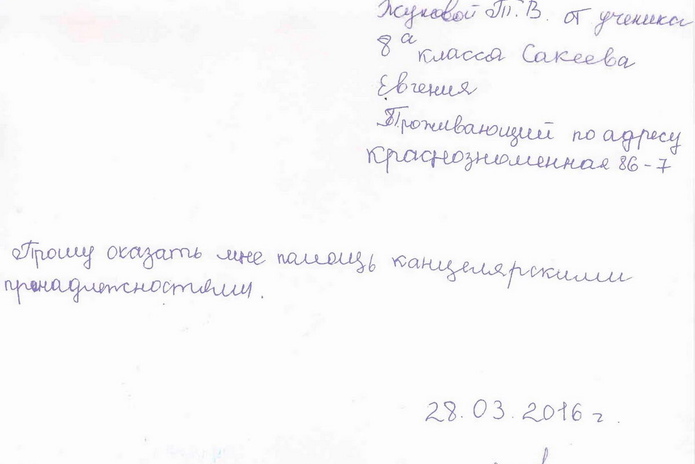 Жуковой Т. В. от ученика
8а класса Сакеева
Евгения
Проживающий по адресу
Краснознаменная 86-7
Прошу оказать мне помощь канцелярскими
принадлежностями.
28.03.2016 г.